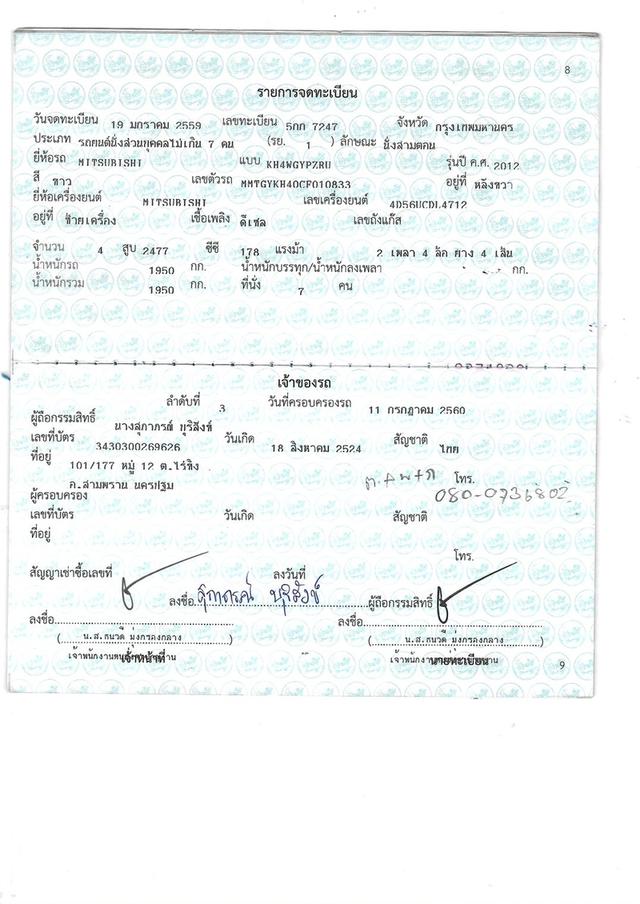 8
รายการจดทะเบียน
วันจดทะเบียน 19 มกราคม 2559 เลขทะเบียน 5กก 7247 จังหวัด กรุงเทพมหานคร
ประเภท รถยนต์นั่งส่วนบุคคลไม่เกิน 7 คน (รย. 1 ) ลักษณะ นั่งสามตอน
ยี่ห้อรถ MITSUBISHI แบบ KH4WGYPZRU รุ่นปี ค.ศ. 2012
สี ขาว เลขตัวรถ MMTGYKH40CF010833 อยู่ที่ หลังขวา
ยี่ห้อเครื่องยนต์ MITSUBISHI เลขเครื่องยนต์ 4D56UCDL4712
อยู่ที่ ซ้ายเครื่อง เชื้อเพลิง ดีเซล เลขถังแก๊ส
จำนวน 4 สูบ 2477 ซีซี 178 แรงม้า 2 เพลา 4 ล้อ ยาง 4 เส้น
น้ำหนักรถ 1950 กก. น้ำหนักบรรทุก/น้ำหนักลงเพลา กก.
น้ำหนักรวม 1950 กก. ที่นั่ง 7 คน
เจ้าของรถ
ลำดับที่ 3 วันที่ครอบครองรถ 11 กรกฎาคม 2560
ผู้ถือกรรมสิทธิ์ นางสุภาภรณ์ บุริสังข์
เลขที่บัตร 3430300269626 วันเกิด 18 สิงหาคม 2524 สัญชาติ ไทย
ที่อยู่ 101/177 หมู่ 12 ต.ไร่ขิง
อ.สามพราน นครปฐม โทร. 080-0736802
ผู้ครอบครอง
เลขที่บัตร วันเกิด สัญชาติ
ที่อยู่
โทร.
สัญญาเช่าซื้อเลขที่ ลงวันที่
ลงชื่อ สุภาภรณ์ บุริสังข์ ผู้ถือกรรมสิทธิ์
ลงชื่อ ลงชื่อ
เจ้าหน้าที่ นายทะเบียน
9